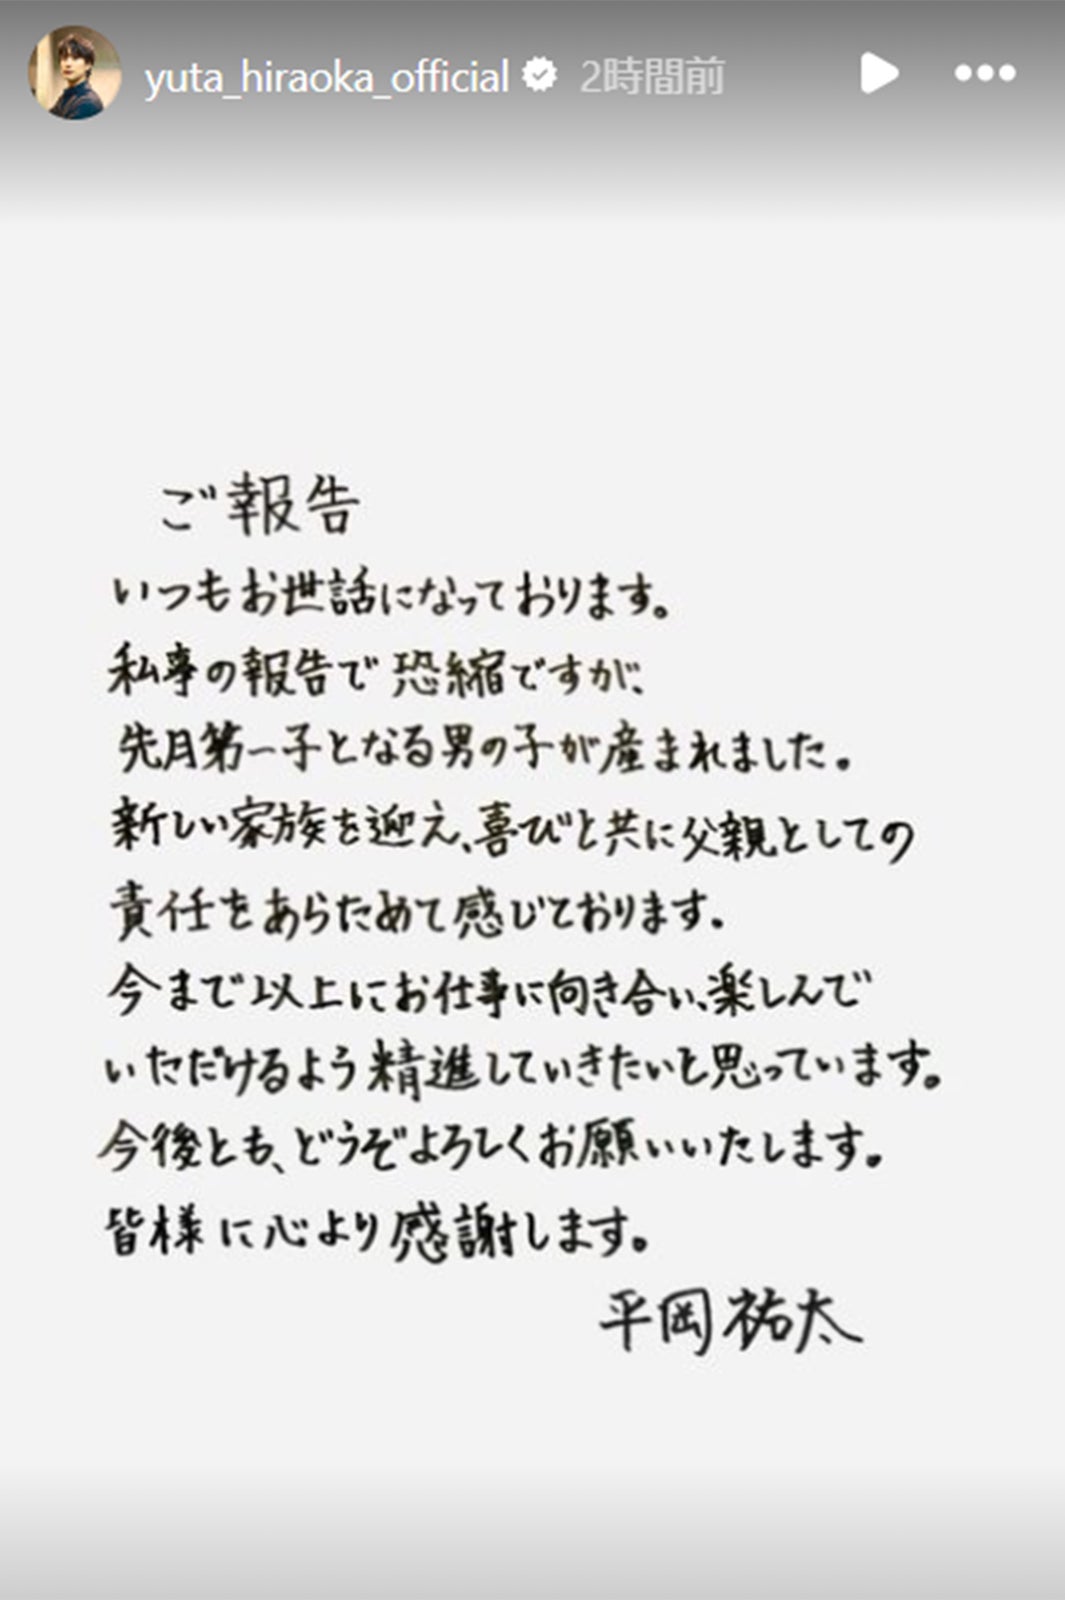 yuta_hiraoka_official 2時間前
ご報告
いつもお世話になっております。
私事の報告で恐縮ですが、
先月第一子となる男の子が産まれました。
新しい家族を迎え、喜びと共に父親としての
責任をあらためて感じております。
今まで以上にお仕事に向き合い、楽しんで
いただけるよう精進していきたいと思っています。
今後とも、どうぞよろしくお願いいたします。
皆様に心より感謝します。
平岡祐太